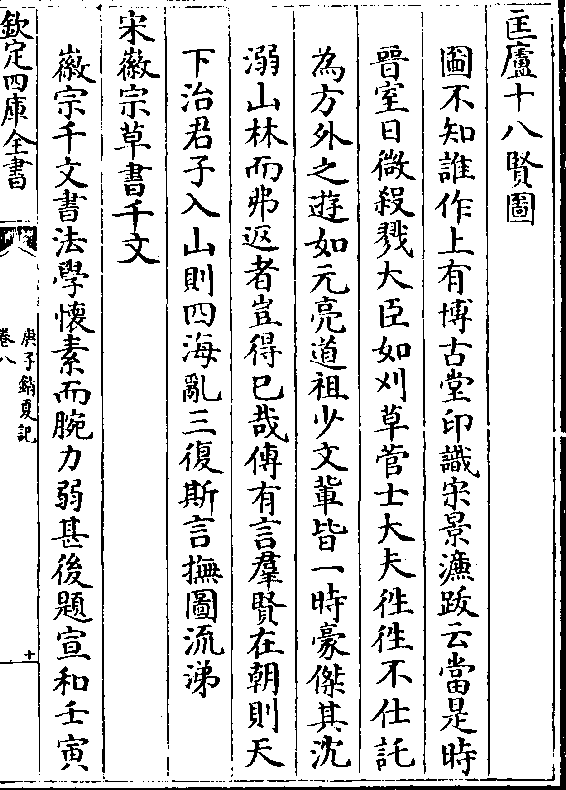 匡廬十八賢圖
圖不知誰作上有博古堂印識宋景濂跋云當是時
晉室日微殺戮大臣如刈草菅士大夫徃徃不仕託
為方外之遊如元亮道祖少文輩皆一時豪傑其沈
溺山林而弗返者豈得已哉傳有言羣賢在朝則天
下治君子入山則四海亂三復斯言撫圖流涕
宋徽宗草書千文
徽宗千文書法學懷素而腕力弱甚後題宣和壬寅
欽定四庫全書
庚子銷夏記
卷八
十